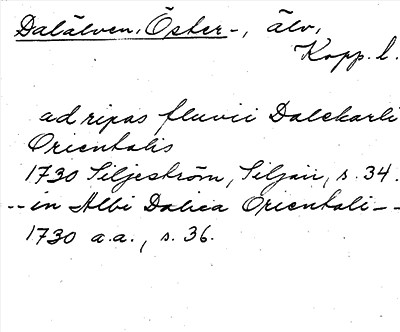 Dalälven, Öster-, älv,
Kopp. l.
ad ripas fluvii Dalekarli
Orientalis
1730 Siljeström, Siljan, s. 34.
-- in Albi Dalica Orientali --
1730 a.a., s. 36.